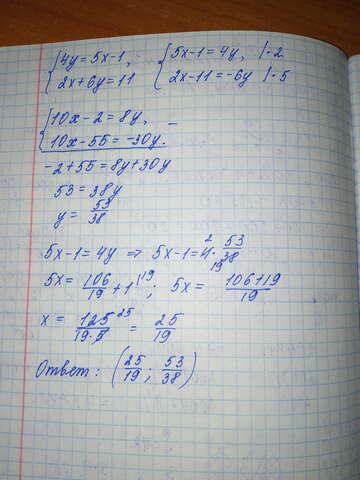 {4y=5x-1, {5x-1=4y, |·2
{2x+6y=11 {2x-11=-6y |·5
{10x-2=8y, -
{10x-55=-30y.
-2+55=8y+30y
53=38y
y= 53/38
5x-1=4y ⇒ 5x-1=4² · 53/38 19
5x= 106/19 +1 |19 ; 5x= 106+19/19
x= 125 25/19·5 = 25/19
Ответ: (25/19; 53/38)